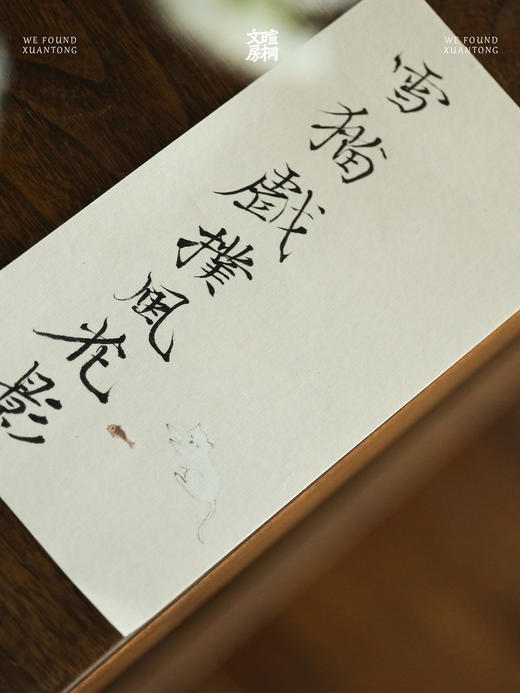 WE FOUND
XUANTONG
文房
暄桐
WE FOUND
XUANTONG
雪猫戲撲風花影